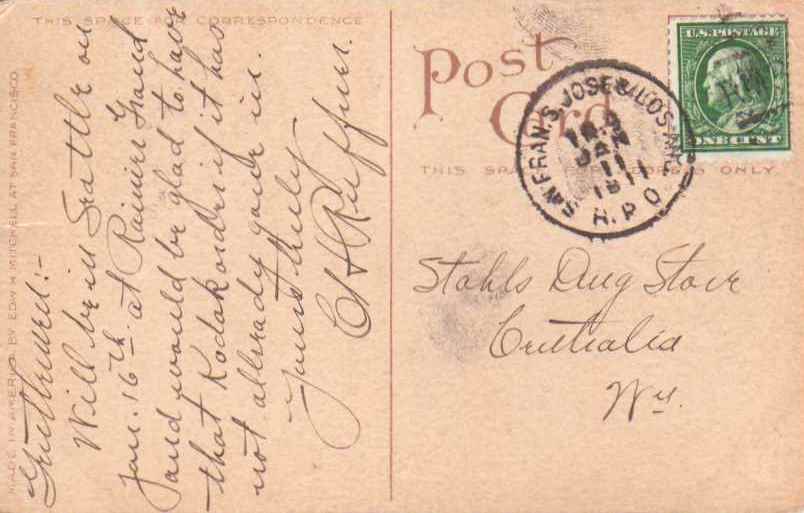 THIS SPACE FOR CORRESPONDENCE
MADE IN AMERICA BY EDW. H. MITCHELL AT SAN FRANCISCO
Gentlemen:-
Will be in Seattle on
Jan. 16th at Rainier Grand
and would be glad to have
that Kodak order if it has
not allready gone in.
Yours truly
C H Ruffner.
Post
Card
THIS SPACE FOR ADDRESS ONLY.
U.S. POSTAGE
ONE CENT
SAN FRAN. S. JOSE & LOS ANG.
JAN
11
1911
R.P.O.
Stahls Drug Store
Centralia
Wn.